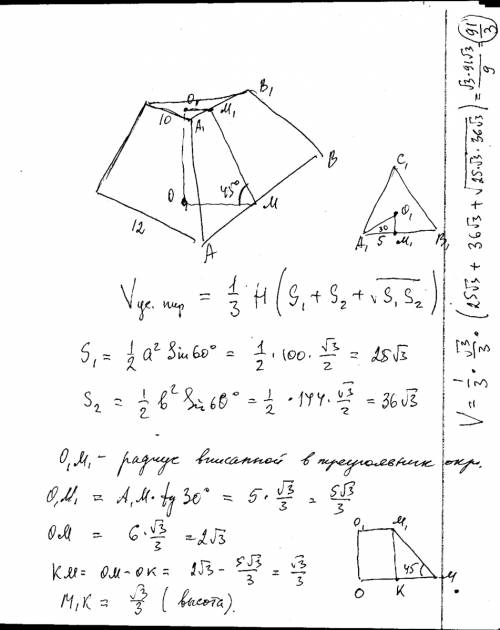 O₁ M₁ B₁
10 A₁
O 45° M B
12
A
C₁
O₁
A₁ 30 5 M₁ B₁
Vус. пир = 1/3 H (S₁ + S₂ + √S₁S₂)
S₁ = 1/2 a² Sin 60° = 1/2 · 100 · √3/2 = 25√3
S₂ = 1/2 b² Sin 60° = 1/2 · 144 · √3/2 = 36√3
O₁M₁ - радиус вписанной в треугольник окр.
O₁M₁ = A₁M · tg 30° = 5 · √3/3 = 5√3/3
OM = 6 · √3/3 = 2√3
KM = OM - OK = 2√3 - 5√3/3 = √3/3
M₁K = √3/3 (высота).
O₁ M₁
45°
O K M
V = 1/3 · √3/3 · (25√3 + 36√3 + √25√3 · 36√3) = √3 · 91√3/9 = 91/3